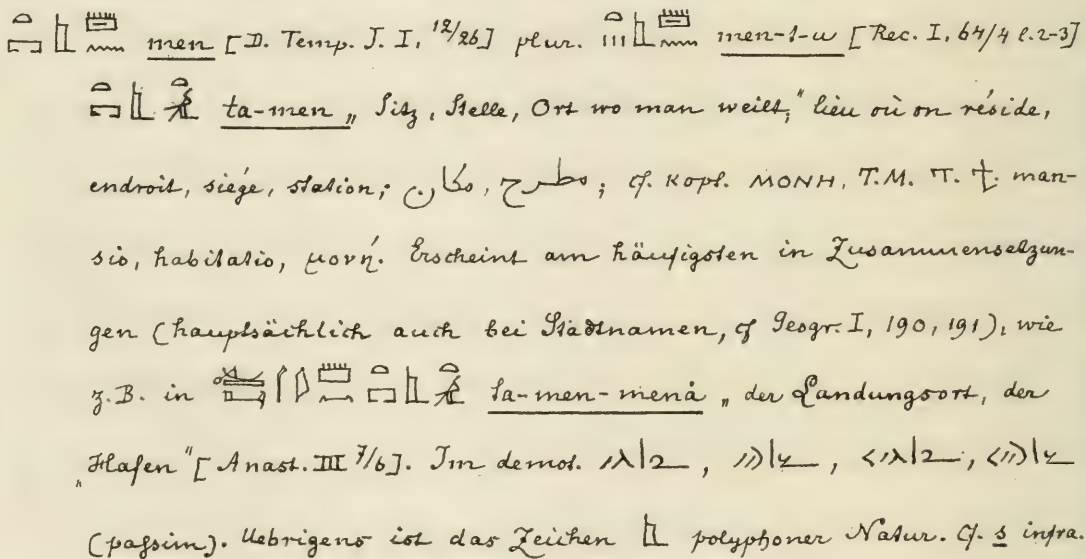 men [D. Temp. J. I, 12/26] plur. men-t-u [Rec. I, 64/4 l. 2-3]
ta-men „Sitz, Stelle, Ort wo man weilt,“ lieu où on réside,
endroit, siége, station; مكان, مطرح; cf. Kopt. ⲙⲟⲛⲏ, T.M. ⲧ. ϯ. man-
sio, habitatio, μονή. Erscheint am häufigsten in Zusammensetzun-
gen (hauptsächlich auch bei Stadtnamen, cf Geogr. I, 190, 191), wie
z.B. in ta-men-menȧ „der Landungsort, der
Hafen“ [Anast. III 7/6]. Im demot.
(passim). Uebrigens ist das Zeichen polyphoner Natur. Cf. s infra.